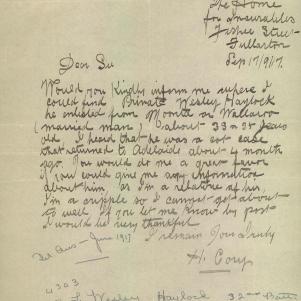 The Home
for Incurables
Fisher Street
Fullarton
Sep 17/9/17.
Dear Sir
Would you kindly inform me where I
could find Private Wesley Haylock
he enlisted from Moonta or Wallaroo
(married man) about 33 or 34 years
old I heard that he was a
that returned to Adelaide about 4 month
ago. You would do me a great favor
if you could give me any information
about him, as I'm a relative of his.
I'm a cripple so I cannot get about
to well. If you let me know by post
I would be very thankful
I remain Yours truly
H. Cory
June 1917
4303
L Wesley Haylock 32nd Battn